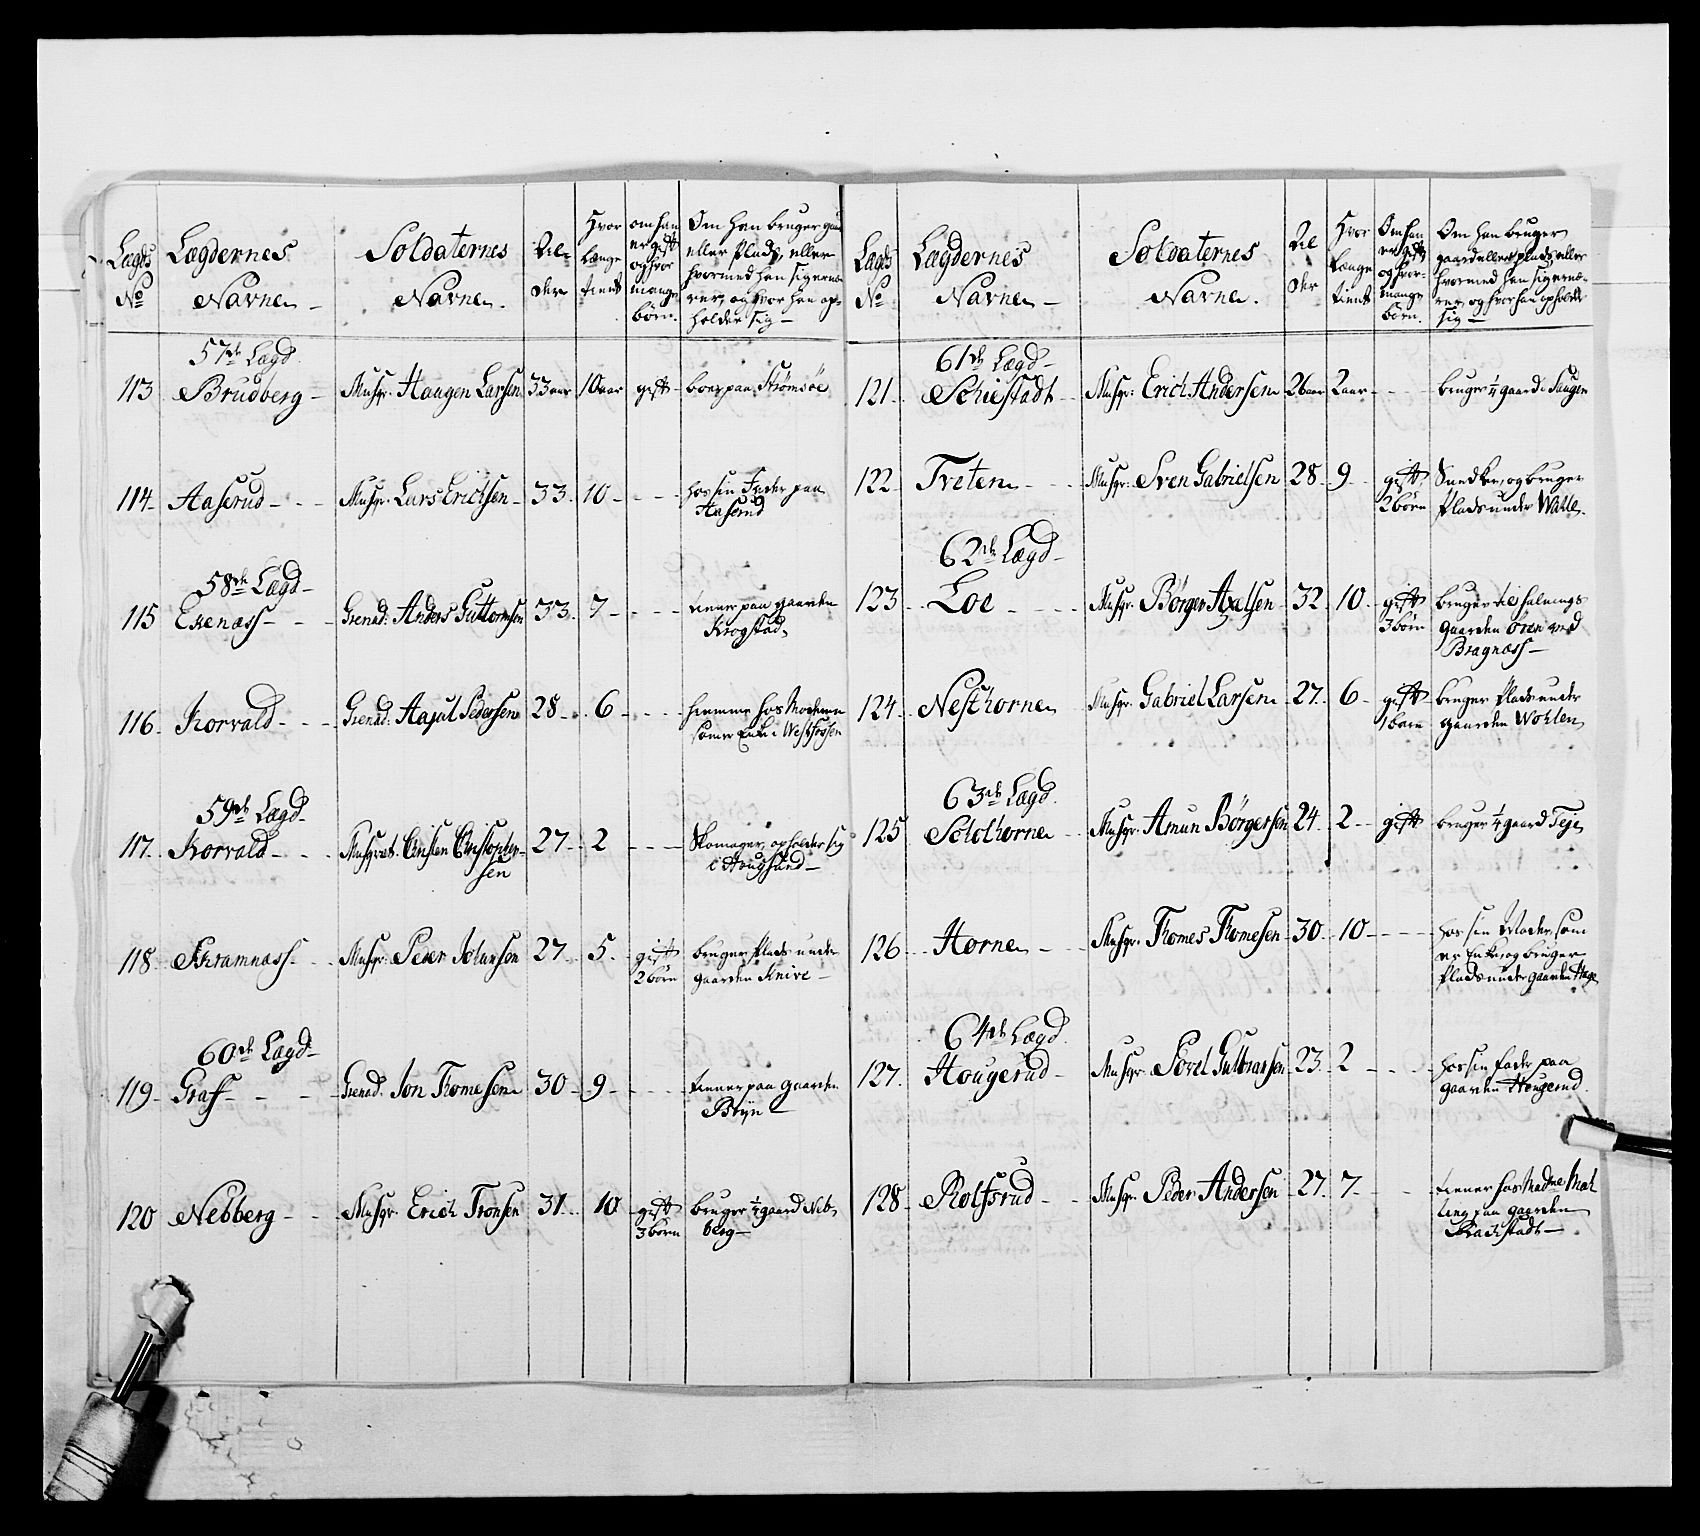 Lægds No
Lægdernes Navne
Soldaternes Navne
Al-der
Hvor længe tient
om han er gift og hvor mange børn.
Om han bruger gaard eller Plads, eller hvormed han sig ernærer, og hvor han opholder sig
57de Lægd
113 Brudberg Musqr: Haagen Larsen 33 aar 10 aar gift boer paa Strømsøe
114 Aaserud Musqr Lars Erichsen 33 10 hos sin Fader paa
Aaserud
58de Lægd
115 Ekenæss Grenad: Anders Guttormsen 33 7 tiener paa gaarden
Krogstad
116 Korvald Grenad: Pedersen 28 6 hiemme hos Moderen
som er Enke i Westfossen
59de Lægd
117 Korvald Christen Christopher- 27 2 Skomager, opholder sig
sen i Hougsund
118 Skramnæss Musqr: Peder Johansen 27 5 gift bruger Plads under
2 børn gaarden Knive
60de Lægd
119 Graf Grenad: Jon Thomesen 30 9 tiener paa gaarden
Bryn
120 Nebberg Musqr Erich Tronsen 31 10 gift bruger ¼ gaard Neb
3 børn berg
Lægds No
Lægdernes Navne
Soldaternes Navne.
Al der
Hvor længe tient
Om han er gift og hvor mange børn.
Om han bruger gaard eller plads, eller hvormed han sig ernærer, og hvor han opholder sig
61de Lægd
121 Schiestadt Musqr: Erich Andersen 26 aar 2 aar bruger ¼ gaard i Saugen
122 Treten Musqr: Sven Gabrielsen 28 9 gift Snedker, og bruger
2 børn Plads under Wahle
62de Lægd
123 Loe Musqr: Børger Axelsen 32 10 gift bruger
3 børn gaarden øren ved
Bragnæss
124 Nesthorne Musqr: Gabriel Larsen 27 6 gift bruger Plads under
1 barn gaarden Wohlen
63de Lægd
125 Solchorne Musqr: Amun Børgersen 24 2 gift bruger ¼ gaard Teje
126 Horne Musqr: Thomes Thomesen 30 10 hos sin Moder, som
er Enke, og bruger
Plads under gaarden Hage
64de Lægd
127 Hougerud Musqr: Povel Gulbransen 23 2 hos sin Fader paa
gaarden Hougerud
128 Rolfsrud Musqr: Peder Andersen 27 7 tiener hos Madme
ling paa gaarden